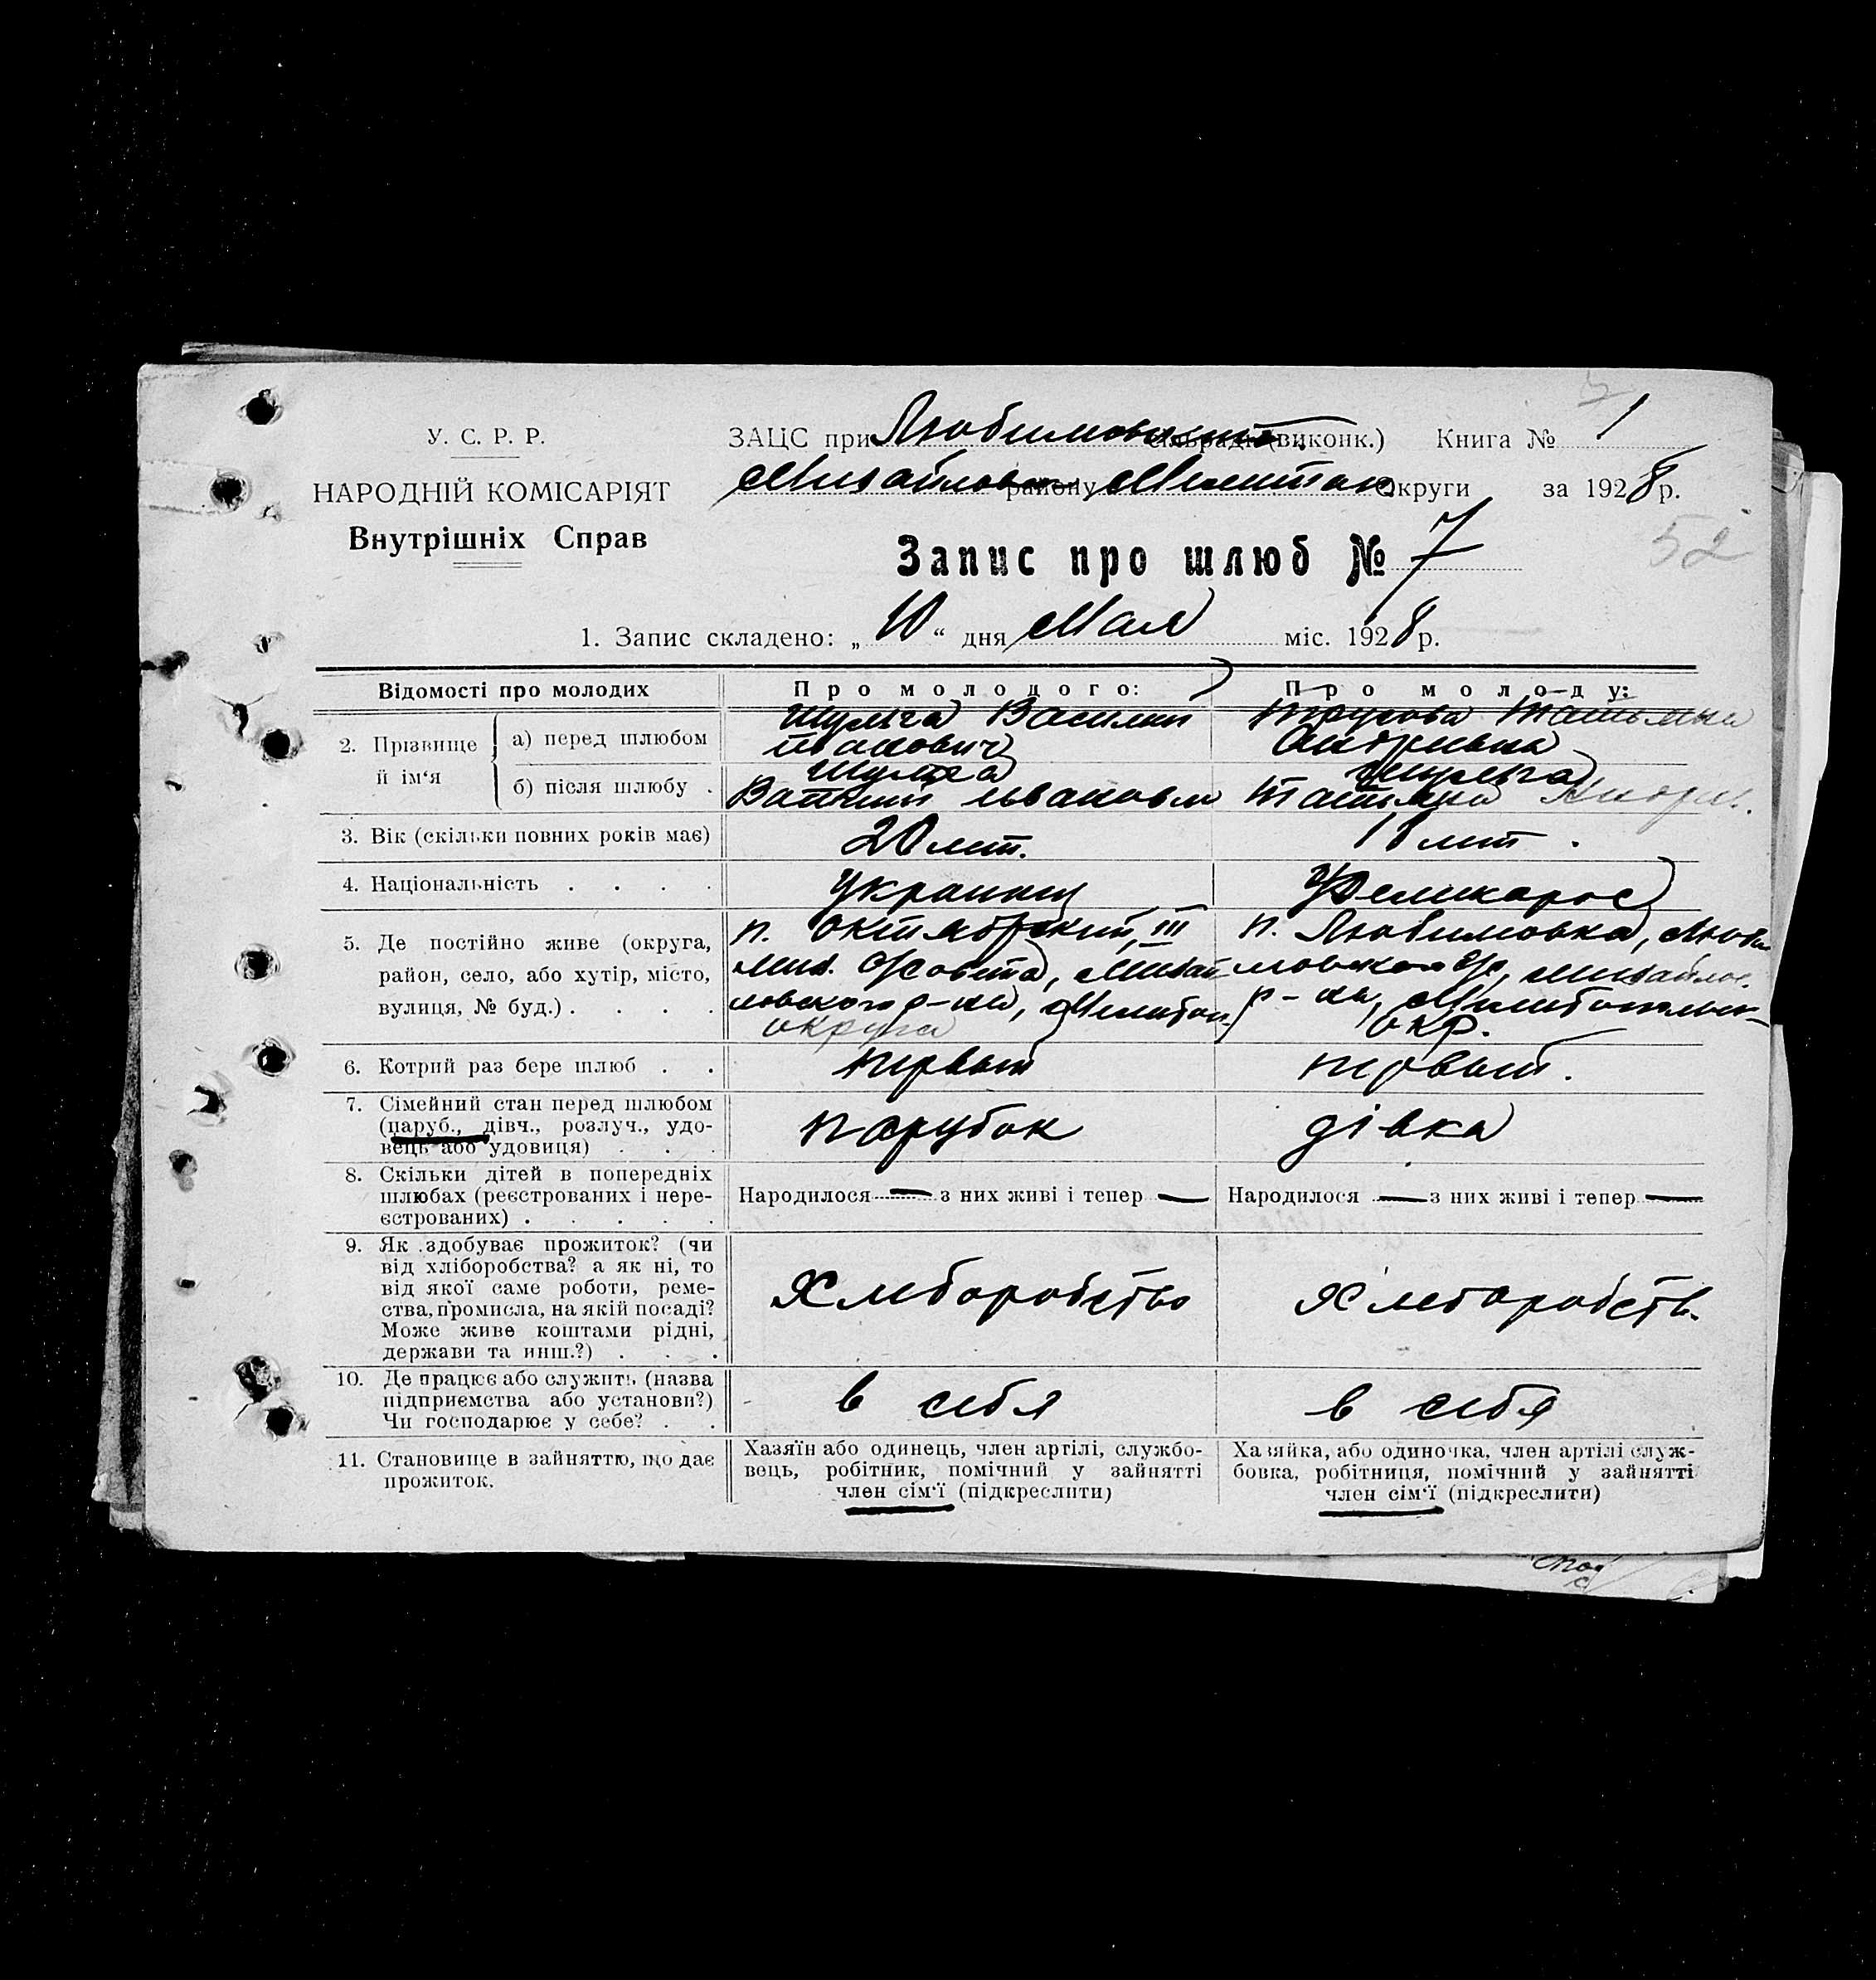 У. С. Р. Р.
НАРОДНІЙ КОМІСАРІЯТ
Внутрішніх Справ
ЗАЦС при Любимовській сільраді (виконк.) Книга № 1
Михайловск району Мелитоп Округи за 1928 р.
52
Запис про шлюб № 7
1. Запис складено: „10“ дня Мая міс. 1928 р.
Відомості про молодих
Про молодого:
Про молоду:
2. Прізвище й ім'я
а) перед шлюбом
Шульга Василий
Иванович
Татьяна
Андреевна
б) після шлюбу .
Шульга
Василий Иванович
Шульга
Татьяна Андре.
3. Вік (скільки повних років має)
20 лет.
18 лет.
4. Національність . . . .
Украинец
Великорос
5. Де постійно живе (округа,
район, село, або хутір, місто,
вулиця, № буд.) . . . .
п. Октябрский, III
Мих. С/совета, Михай
ловского р-на, Мелитоп.
округа
п. Любимовка, Люби
мовского с/с, Михайлов.
р-на, Мелитопольск-
окр.
6. Котрий раз бере шлюб . .
первый
первый.
7. Сімейний стан перед шлюбом
(паруб., дівч., розлуч., удо-
вець або удовиця) . . .
парубок
дівка
8. Скільки дітей в попередніх
шлюбах (реєстрованих і нере-
єстрованих) . . . . .
Народилося — з них живі і тепер —
Народилося — з них живі і тепер —
9. Як здобуває прожиток? (чи
від хліборобства? а як ні, то
від якої саме роботи, реме-
ства, промисла, на якій посаді?
Може живе коштами рідні,
держави та инш.?) . . .
Хлеборобство
Хлеборобств.
10. Де працює або служить (назва
підприємства або установи?)
Чи господарює у себе? . .
в себя
в себя
11. Становище в зайняттю, що дає
прожиток.
Хазяїн або одинець, член артілі, службо-
вець, робітник, помічний у зайнятті
член сім'ї (підкреслити)
Хазяйка, або одиночка, член артілі служ-
бовка, робітниця, помічний у зайнятті
член сім'ї (підкреслити)